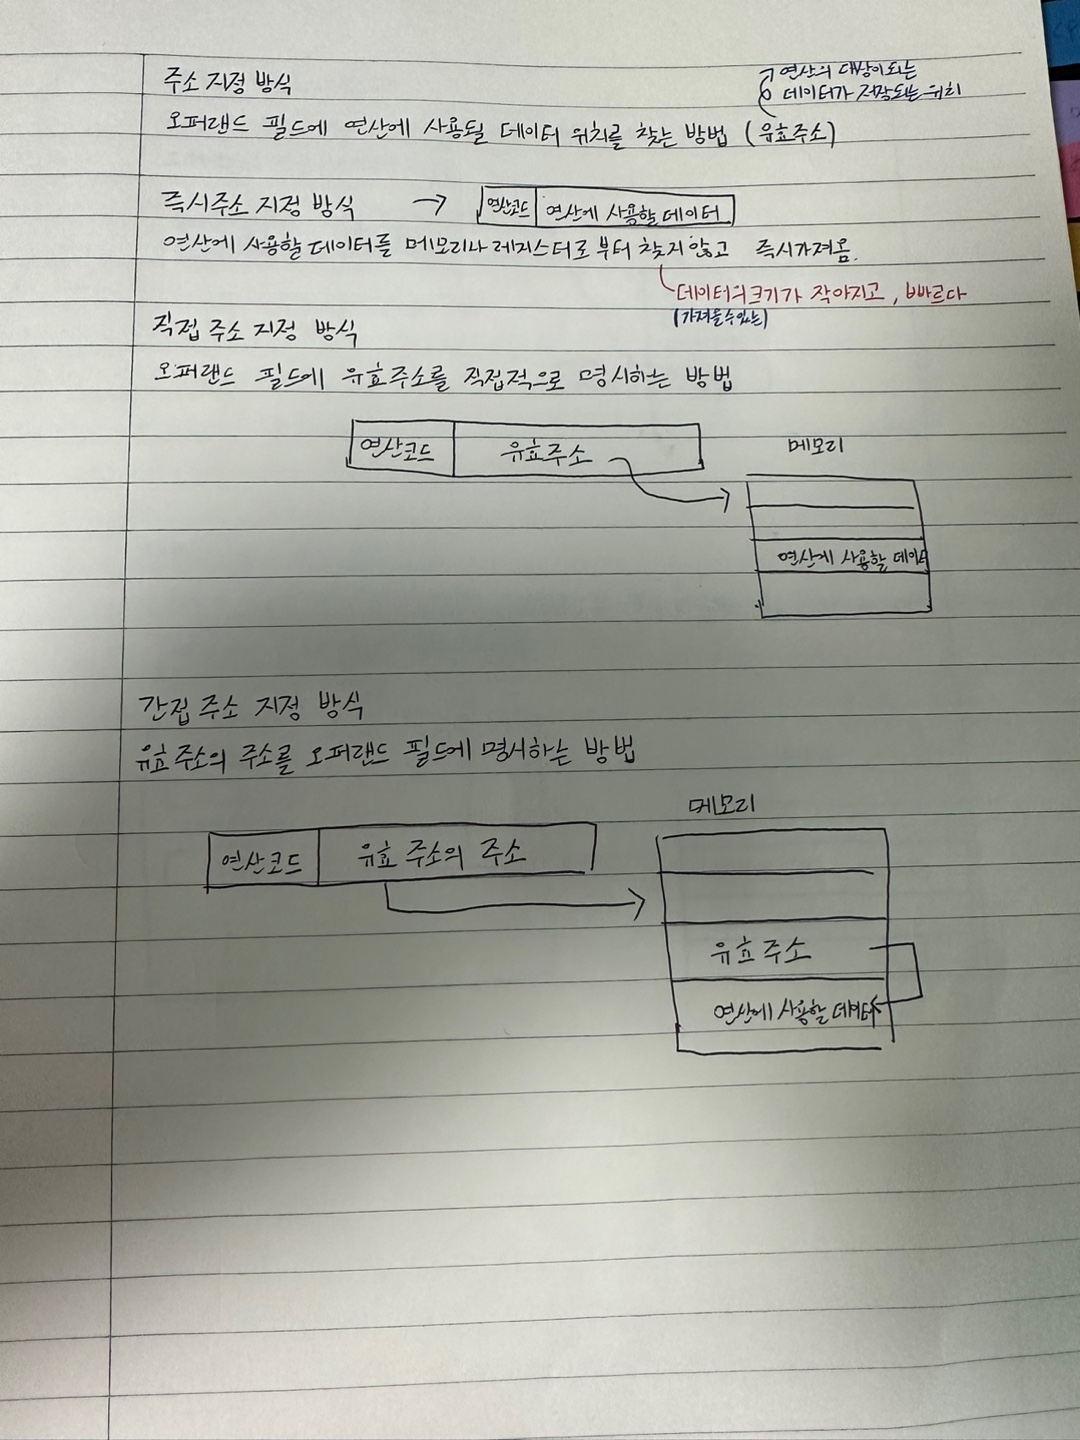 주소 지정 방식
연산의 대상이되는
데이터가 저장되는 위치
오퍼랜드 필드에 연산에 사용될 데이터 위치를 찾는 방법 (유효주소)
즉시주소 지정 방식 → 연산코드 연산에 사용할 데이터
연산에 사용할 데이터를 메모리나 레지스터로 부터 찾지 않고 즉시가져옴.
데이터의크기가 작아지고, 빠르다
(가져올수있는)
직접 주소 지정 방식
오퍼랜드 필드에 유효주소를 직접적으로 명시하는 방법
연산코드 유효주소
메모리
연산에 사용할 데이터
간접 주소 지정 방식
유효주소의 주소를 오퍼랜드 필드에 명시하는 방법
메모리
연산코드 유효 주소의 주소
유효 주소
연산에 사용할 데이터